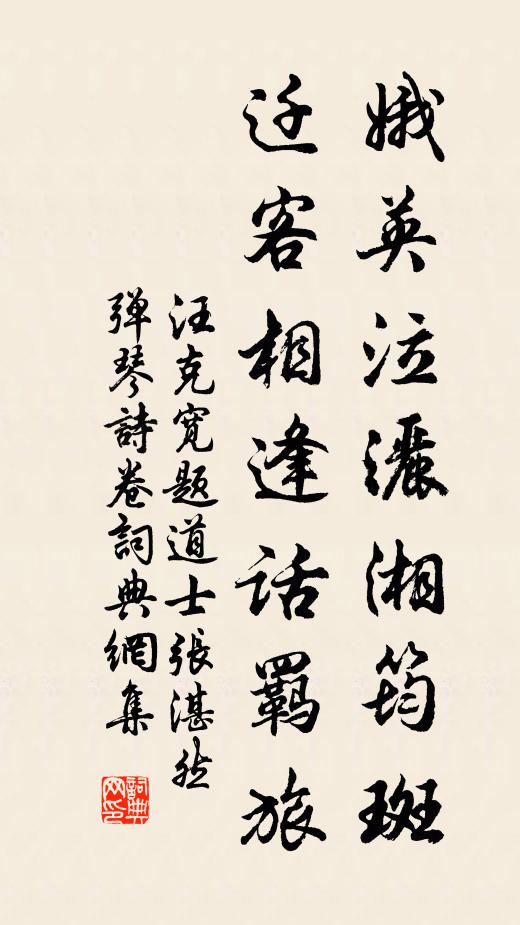 娥英泣灑湘筠斑
迁客相逢話羈旅
汪克寛题道士張湛然
弹琴詩卷詞典網集
詞典网印